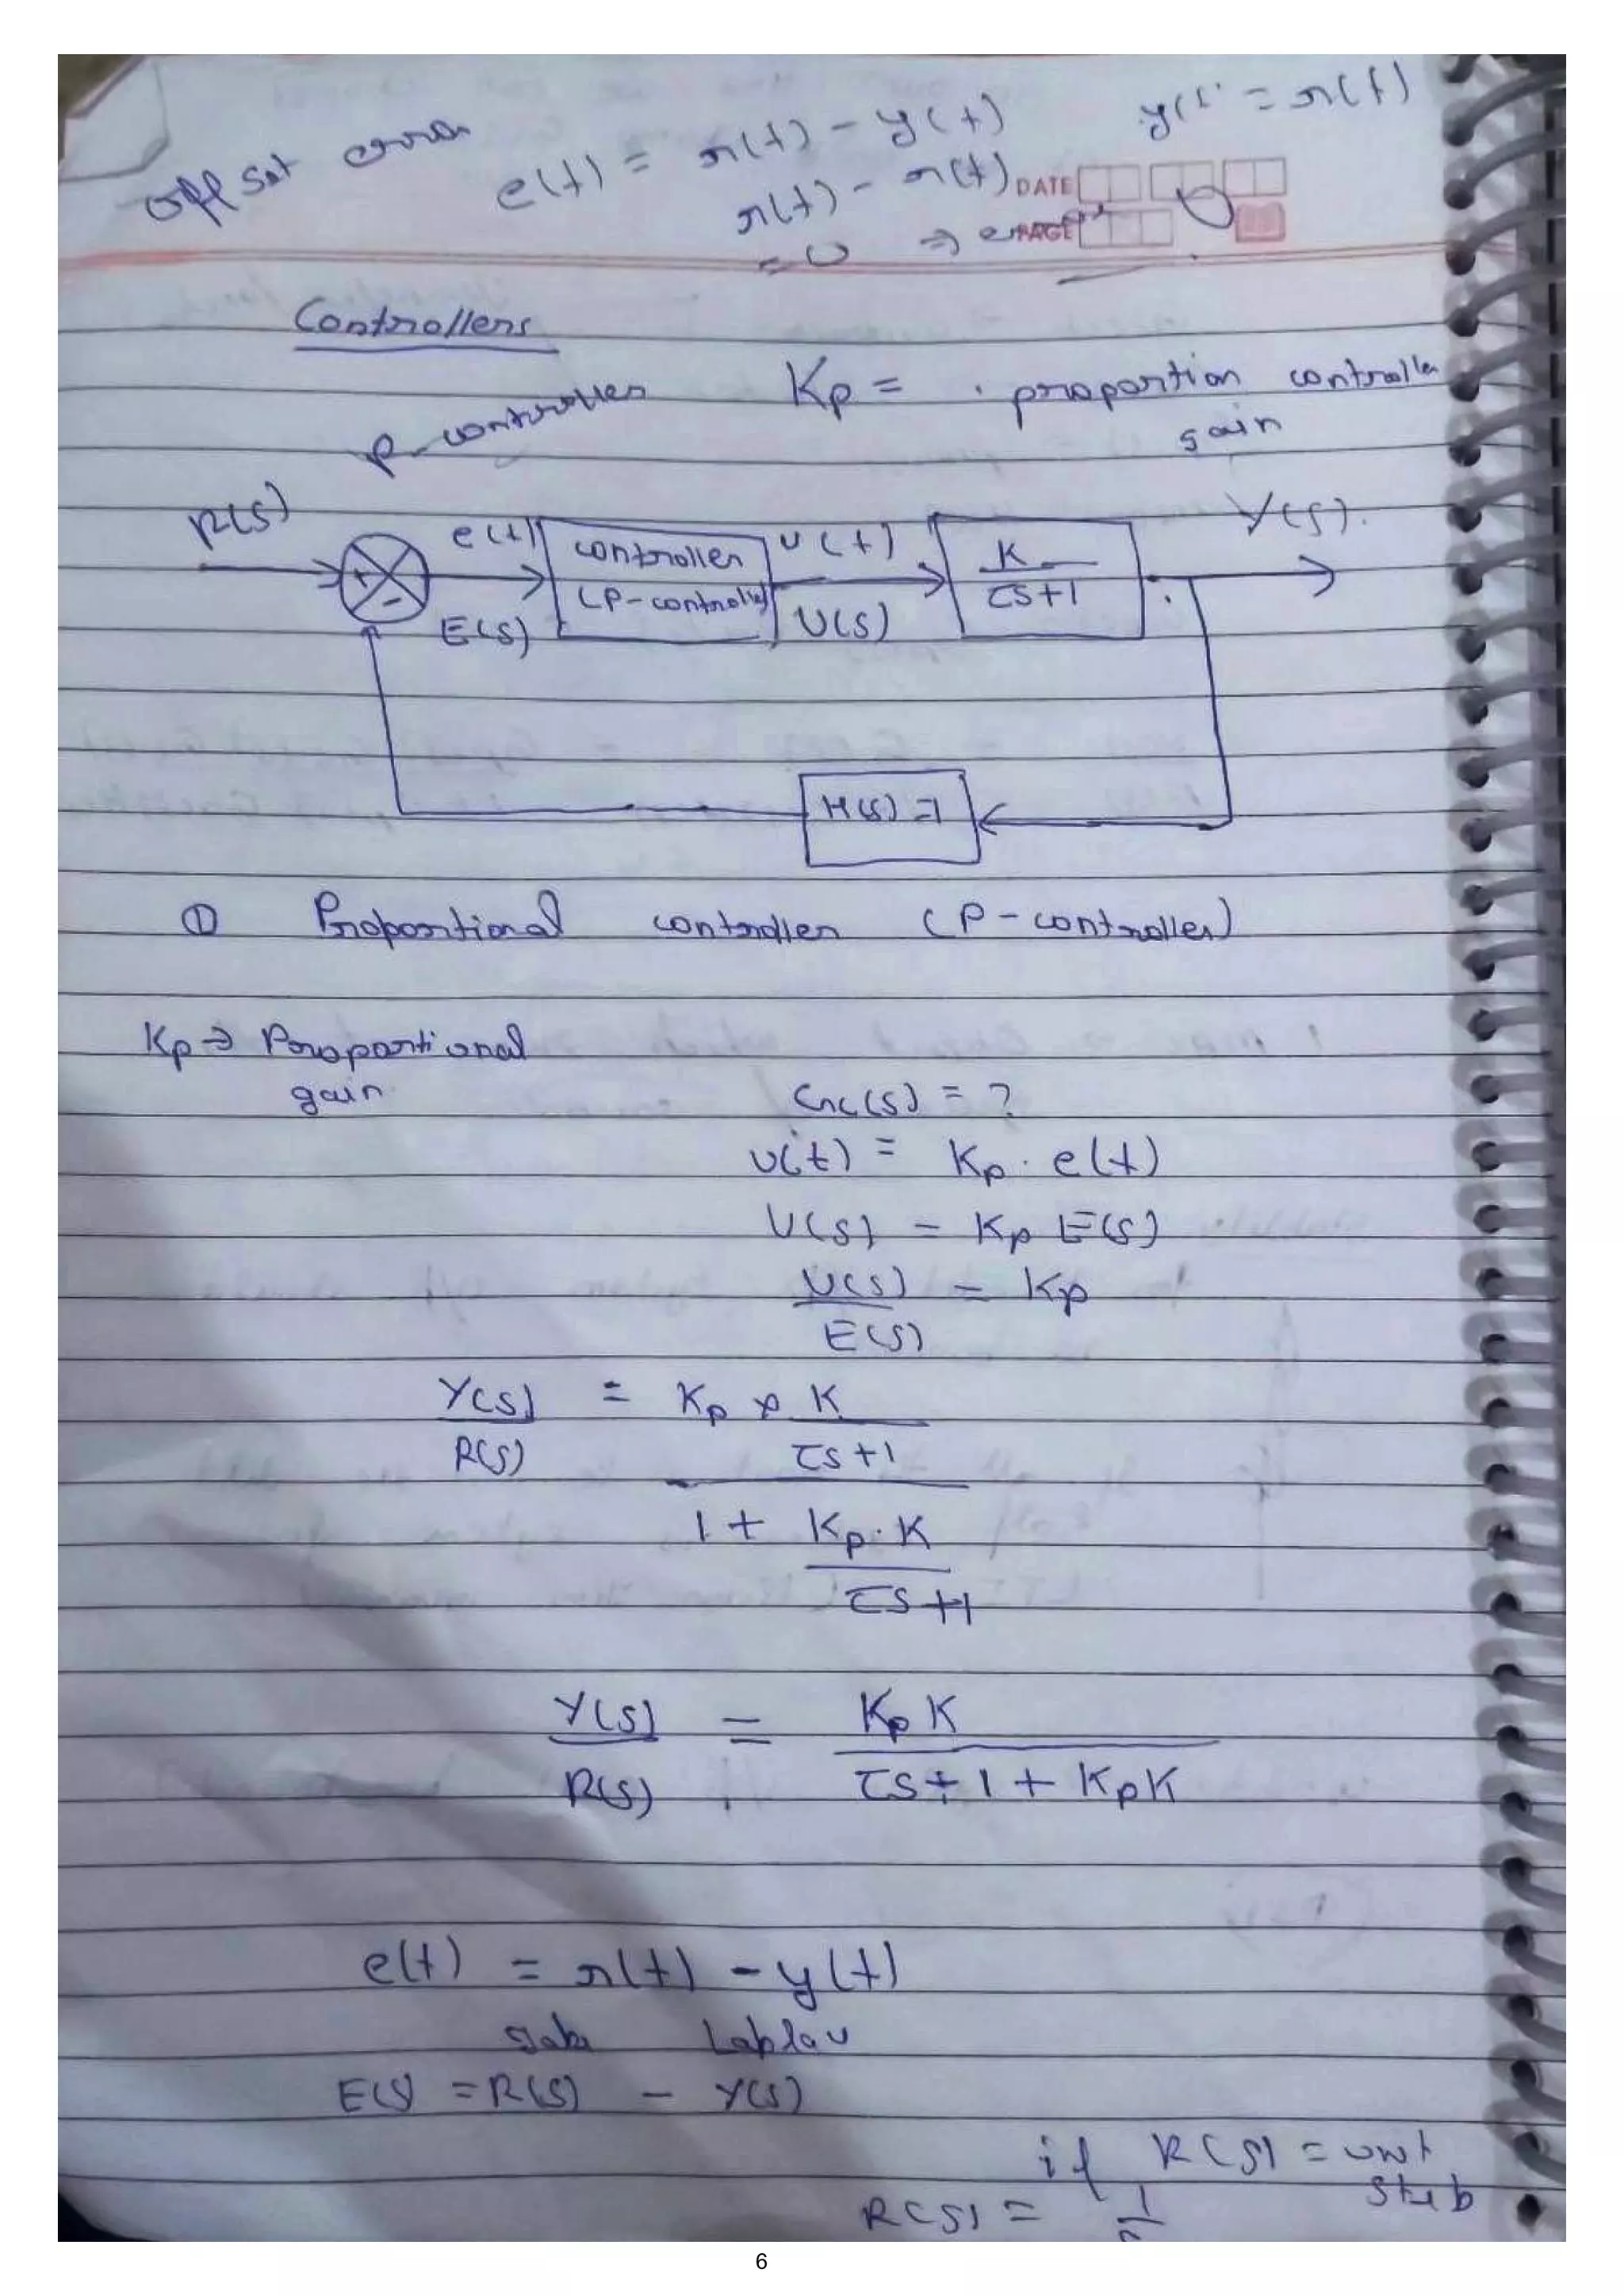 offset error e(t) = r(t) - y(t)
r(t) - r(t)
= 0 ⇒
= r(t)
DATE
PAGE
Controllers
P controller
Kp = proportion controller
gain
R(s)
e(t)
E(s)
+
-
controller
(P-controller)
u(t)
U(s)
K
τs+1
Y(s).
H(s) = 1
① Proportional controller (P-controller)
Kp → Proportional
gain
Gc(s) = ?
u(t) = Kp . e(t)
U(s) = Kp E(s)
U(s) = Kp
E(s)
Y(s) = Kp x K
R(s) τs+1
1 + Kp.K
τs+1
Y(s) = KpK
R(s) τs+1+KpK
e(t) = r(t) - y(t)
E(s) = R(s) - Y(s)
if R(s) = unit
step
R(s) = 1
6